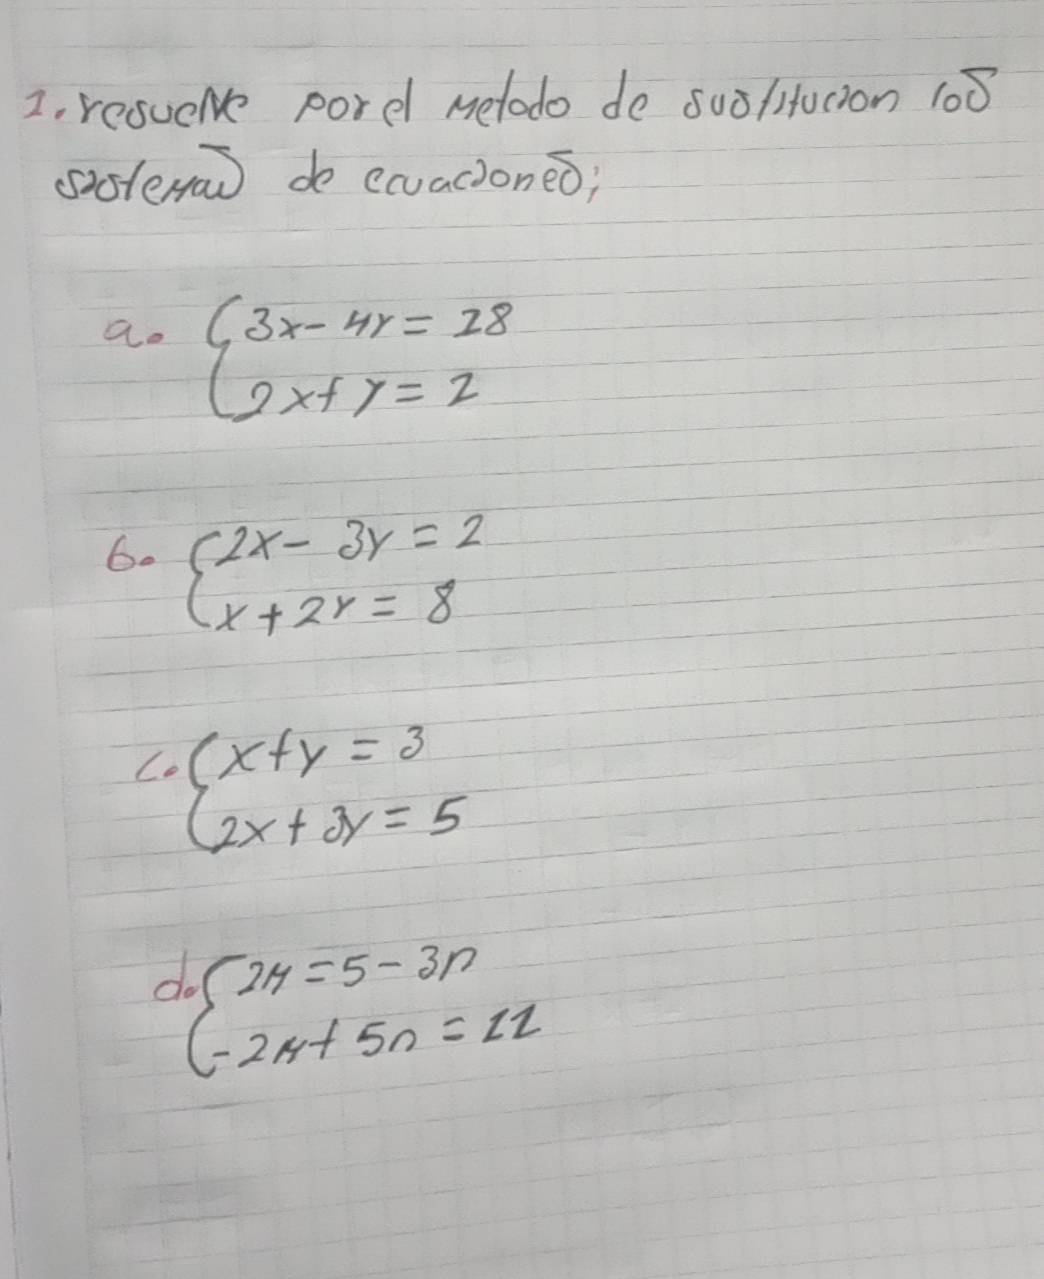 1. resuelve por el metodo de sustitucion los
sistemas de ecuaciones;
a. { 3x - 4y = 18
2x + y = 1
b. { 2x - 3y = 2
x + 2y = 8
c. { x + y = 3
2x + 3y = 5
d. { 2M = 5 - 3n
-2M + 5n = 11